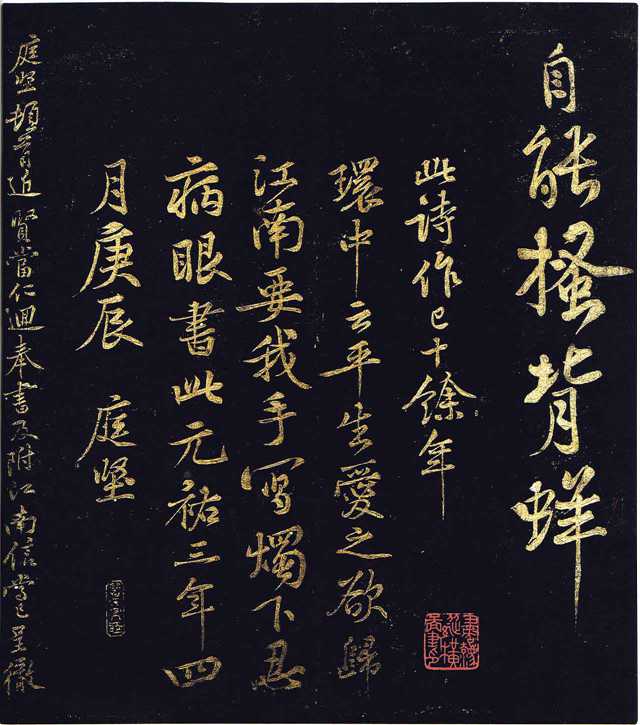 自能搔背蛘
此诗作已十馀年
環中云平生愛之欲歸
江南要我手寫燭下忍
病眼書此元祐三年四
月庚辰 庭堅
庭堅頓首追賢當仁迴奉書及附江南信當已呈徹